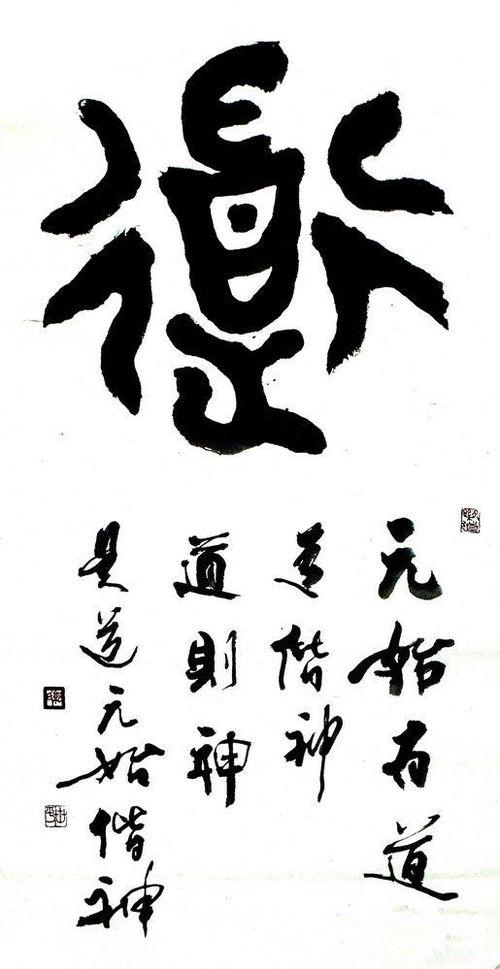 道
元始有道
道偕神
道則神
是道元始偕神